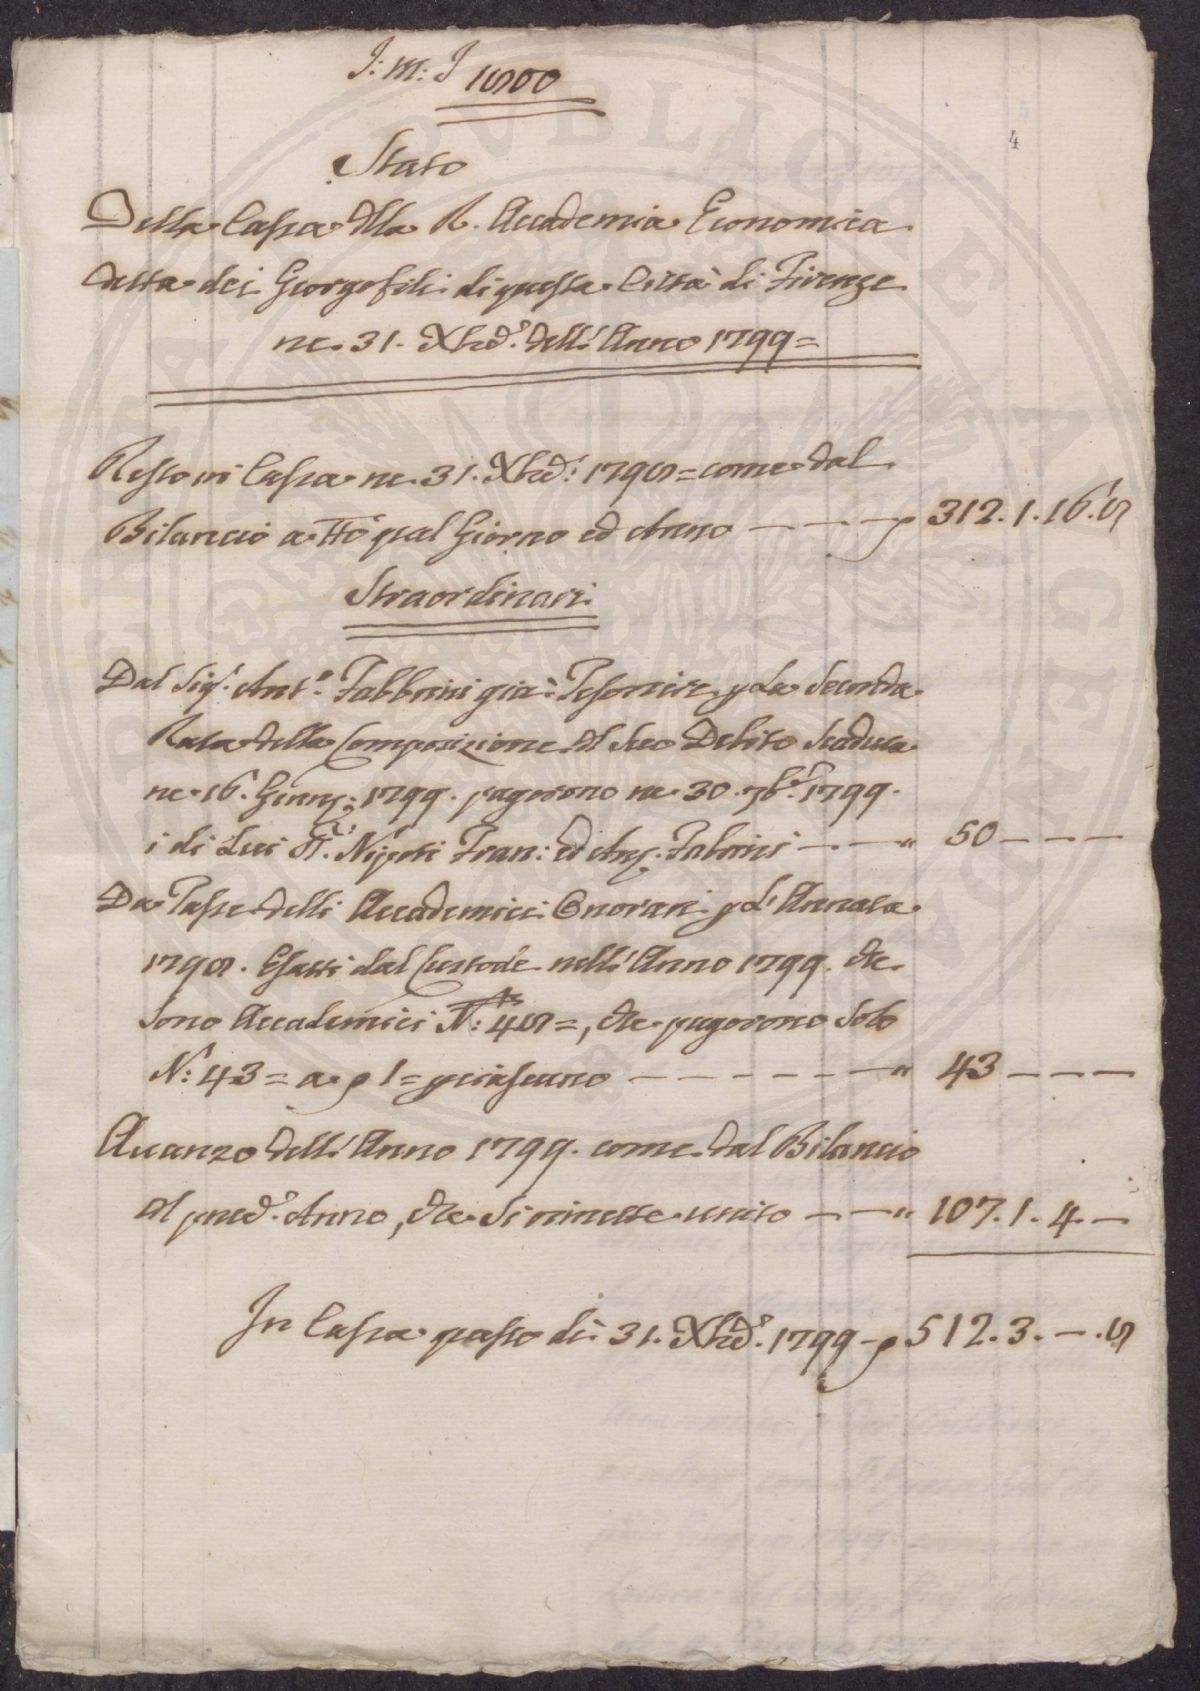 J: M: J 1800
4
Stato
Della Cassa della R. Accademia Economica
detta dei Georgofili di questa Città di Firenze
ne 31. Xbre. dell'Anno 1799=
Resto in Cassa ne 31. Xbre: 1798= come dal
Bilancio a tto qual Giorno ed Anno — — — 312.1.16.8
Straordinari
Dal Sigr. Anto. Fabbrini già Tesoriere p La Seconda
Rata della Composizione del Suo Debito Scaduta
ne 16. Genn: 1799. pagorono ne 30. 7bre. 1799.
i di Lui Nipoti Fran: ed Ang. Fabrini — — " 50 — — —
Da Tasse delli Accademici Onorari p L'Annata
1798. Esatti dal Custode nell'Anno 1799. che
sono Accademici N: 48=, che pagorono solo
N: 43= a p 1= p ciascuno — — — — — " 43 — — —
Avanzo dell'Anno 1799. come dal Bilancio
del pred.o Anno, che si rimette unito — — " 107.1.4 —
In Cassa questo dì 31. Xbre. 1799 — 512.3.—.8